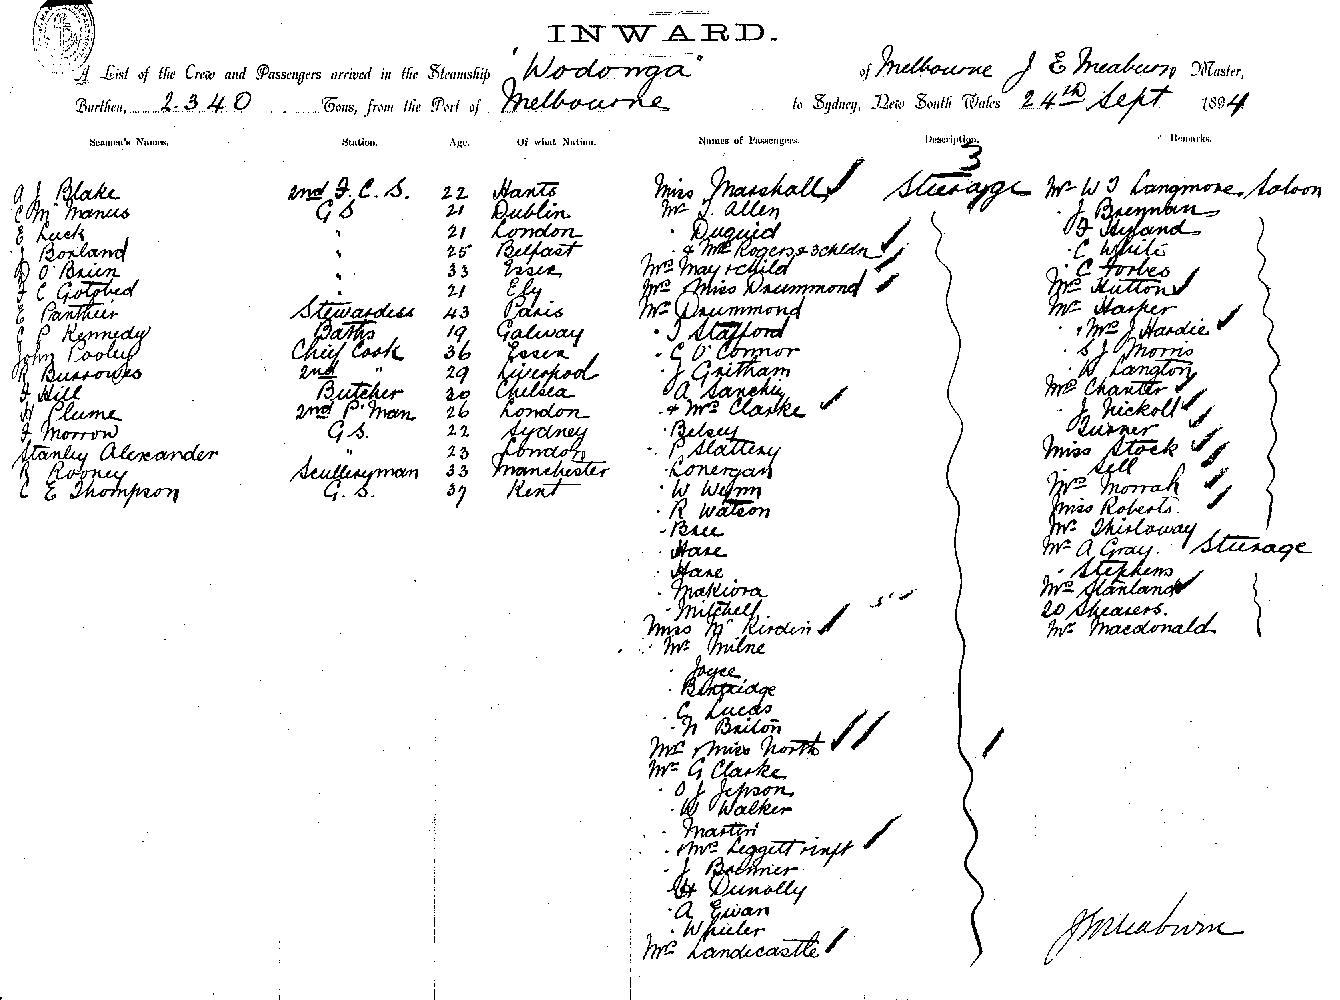 INWARD.
A List of the Crew and Passengers arrived in the Steamship "Wodonga" of Melbourne J E Meaburn Master,
Burthen, 2340 Tons, from the Port of Melbourne to Sydney, New South Wales 24th Sept 1894
Seamen's Names. Station. Age. Of what Nation. Names of Passengers. Description. Remarks.
3
A J Blake 2nd F.C.S. 22 Hants
C McManus G S 21 Dublin
E Luck " 21 London
J Borland " 25 Belfast
D O'Brien " 33 Essex
F C Gotobed " 21 Ely
E Panther Stewardess 43 Paris
G P Kennedy Baths 19 Galway
John Pooley Chief Cook 36 Essex
R Burrowes 2nd " 29 Liverpool
F Hill Butcher 20 Chelsea
W Plume 2nd P'Man 26 London
F Morrow G.S. 22 Sydney
Stanley Alexander " 23 London
R Rooney Sculleryman 33 Manchester
C E Thompson G.S. 37 Kent
Miss Marshall Steerage
Mr S. Allen
" Duguid
" & Mrs Rogers & 3 chldn
Mrs May & child
Mrs & Miss Drummond
Mr Drummond
" T Stafford
" C O'Connor
" J Gritham
" A Sanchey
" & Mrs Clarke
" Belsey
" P Slattery
" Lonergan
" W Wynn
" R Watson
" Bree
" Hare
" Hare
" Makiora
" Mitchell
Miss McKirdin
Mr Milne
" Joyce
" Bentridge
" C Lucas
" N Briton
Mrs & Miss North
Mr G Clarke
" O J Jepson
" W Walker
" Martin
" & Mrs Leggett & inft
" J Brenner
" H Dunolly
" A Ewan
" Wheeler
Mrs Landecastle
Mr W T Langmore Saloon
" J Brennan
" F Hyland
" C White
" C Forbes
Mrs Hutton
Mr Harper
" & Mrs J Hardie
" S J Morris
" W Langton
Mrs Chanter
" J Nickoll
" Turner
Miss Stock
" Sell
Mrs Morrah
Miss Roberts
Mr Thirlaway
Mr A Gray Steerage
" Stephens
Mrs Stanland
20 Shearers.
Mr Macdonald
J E Meaburn